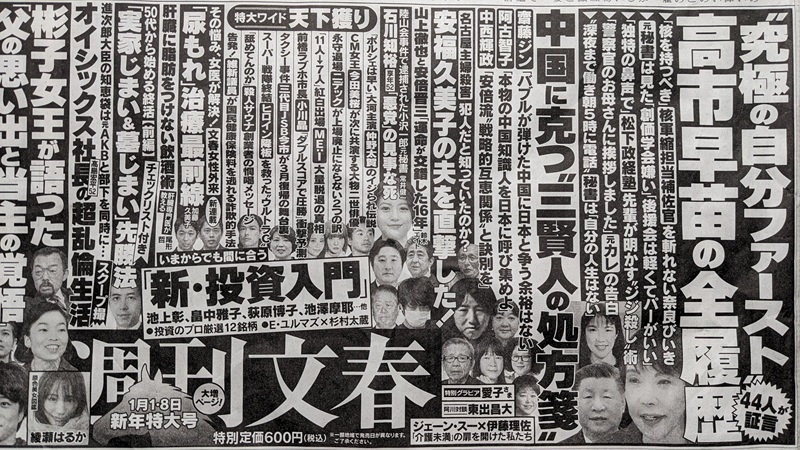 "究極の自分ファースト"
高市早苗の全履歴
44人が証言
▼核を持つべき 核軍縮担当補佐官を斬れない奈良びいき
▼元秘書は見た「創価学会嫌い」「後援会は軽くてパーがいい」
▼独特の鼻声で「松下政経塾」先輩が明かす“ジジ殺し”術
▼「警察官のお母さんに挨拶しました」元カレの告白
▼深夜まで働き朝5時に電話「秘書は自分の人生はない」
中国に克つ“三賢人の処方箋”
齋藤ジン「バブルが弾けた中国に日本と争う余裕はない」
阿古智子「本物の中国知識人を日本に呼び集めよ」
中西輝政「安倍流“戦略的互恵関係”と訣別を」
名古屋主婦殺害 犯人だと知っていたのか?
安福久美子の夫を直撃した!
山上徹也と安倍晋三 運命が交錯した16年
陸山会事件で逮捕された小沢一郎元秘書
石川知裕 享年52「悪党」の見事な死
特大ワイド 天下獲り
「ポルシェは早い」大河主演
CM女王 今田美桜が次に共演する大物二世俳優
永守退場 ニデックが上場廃止にならない二つの訳
11人→7人 紅白出場 ME:I 大量脱退の真相
前橋ラブホ市長 小川晶 ダブルスコアで圧勝 衝撃予測
タクシー事件 三代目JSB
告発!維新議員が国民健康保険料を逃れる詐欺的手法
その悩み、女医が解決!
「尿もれ」治療最前線
文春女性外来
新連載
肝臓に脂肪をつけない飲酒術
50代から始める終活【前編】
「実家じまい&墓じまい」先勝法
チェックリスト付き
進次郎大臣の知恵袋は元AKBと部下を同時に…
スクープ撮
オイシックス社長の超乱倫生活
彬子女王が語った
「父の思い出と当主の覚悟」
いまからでも間に合う
「新・投資入門」
池上彰、畠中雅子、荻原博子、池澤摩耶…他
●投資のプロ厳選12銘柄 ●E・ユルマズ×杉村太蔵
週刊文春
大増ページ!
1月1・8日
新年特大号
特別定価600円(税込)
※一部地域で発売日が異なります。ご了承ください。
原色美女図鑑
綾瀬はるか
特別グラビア 愛子さま
阿川対談 東出昌大
ジェーン・スー×伊藤理佐
「介護未満」の扉を開けた私たち